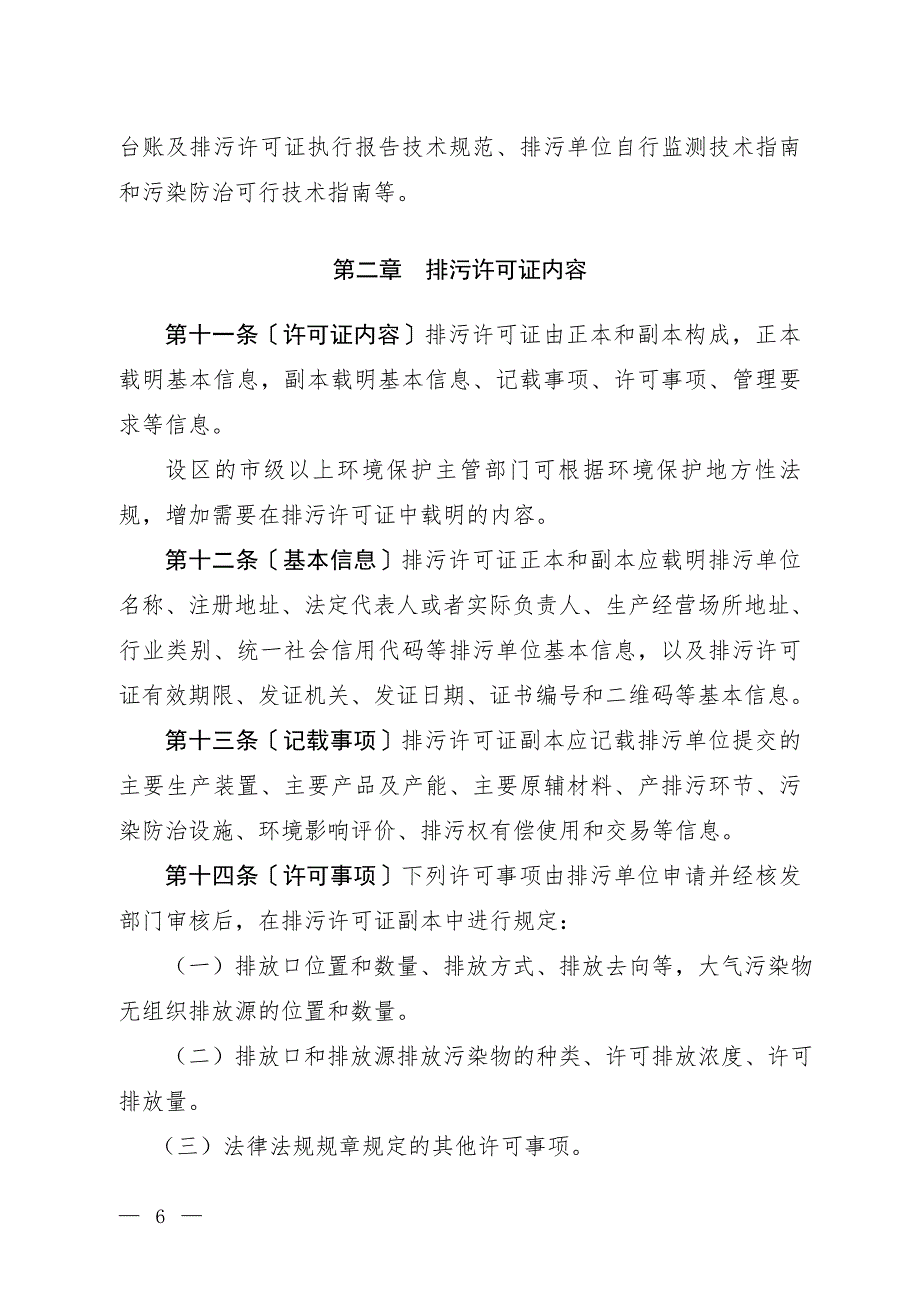 台账及排污许可证执行报告技术规范、排污单位自行监测技术指南
和污染防治可行技术指南等。
第二章　排污许可证内容
第十一条〔许可证内容〕排污许可证由正本和副本构成，正本
载明基本信息，副本载明基本信息、记载事项、许可事项、管理要
求等信息。
设区的市级以上环境保护主管部门可根据环境保护地方性法
规，增加需要在排污许可证中载明的内容。
第十二条〔基本信息〕排污许可证正本和副本应载明排污单位
名称、注册地址、法定代表人或者实际负责人、生产经营场所地址、
行业类别、统一社会信用代码等排污单位基本信息，以及排污许可
证有效期限、发证机关、发证日期、证书编号和二维码等基本信息。
第十三条〔记载事项〕排污许可证副本应记载排污单位提交的
主要生产装置、主要产品及产能、主要原辅材料、产排污环节、污
染防治设施、环境影响评价、排污权有偿使用和交易等信息。
第十四条〔许可事项〕下列许可事项由排污单位申请并经核发
部门审核后，在排污许可证副本中进行规定：
（一）排放口位置和数量、排放方式、排放去向等，大气污染物
无组织排放源的位置和数量。
（二）排放口和排放源排放污染物的种类、许可排放浓度、许可
排放量。
（三）法律法规规章规定的其他许可事项。
— 6 —